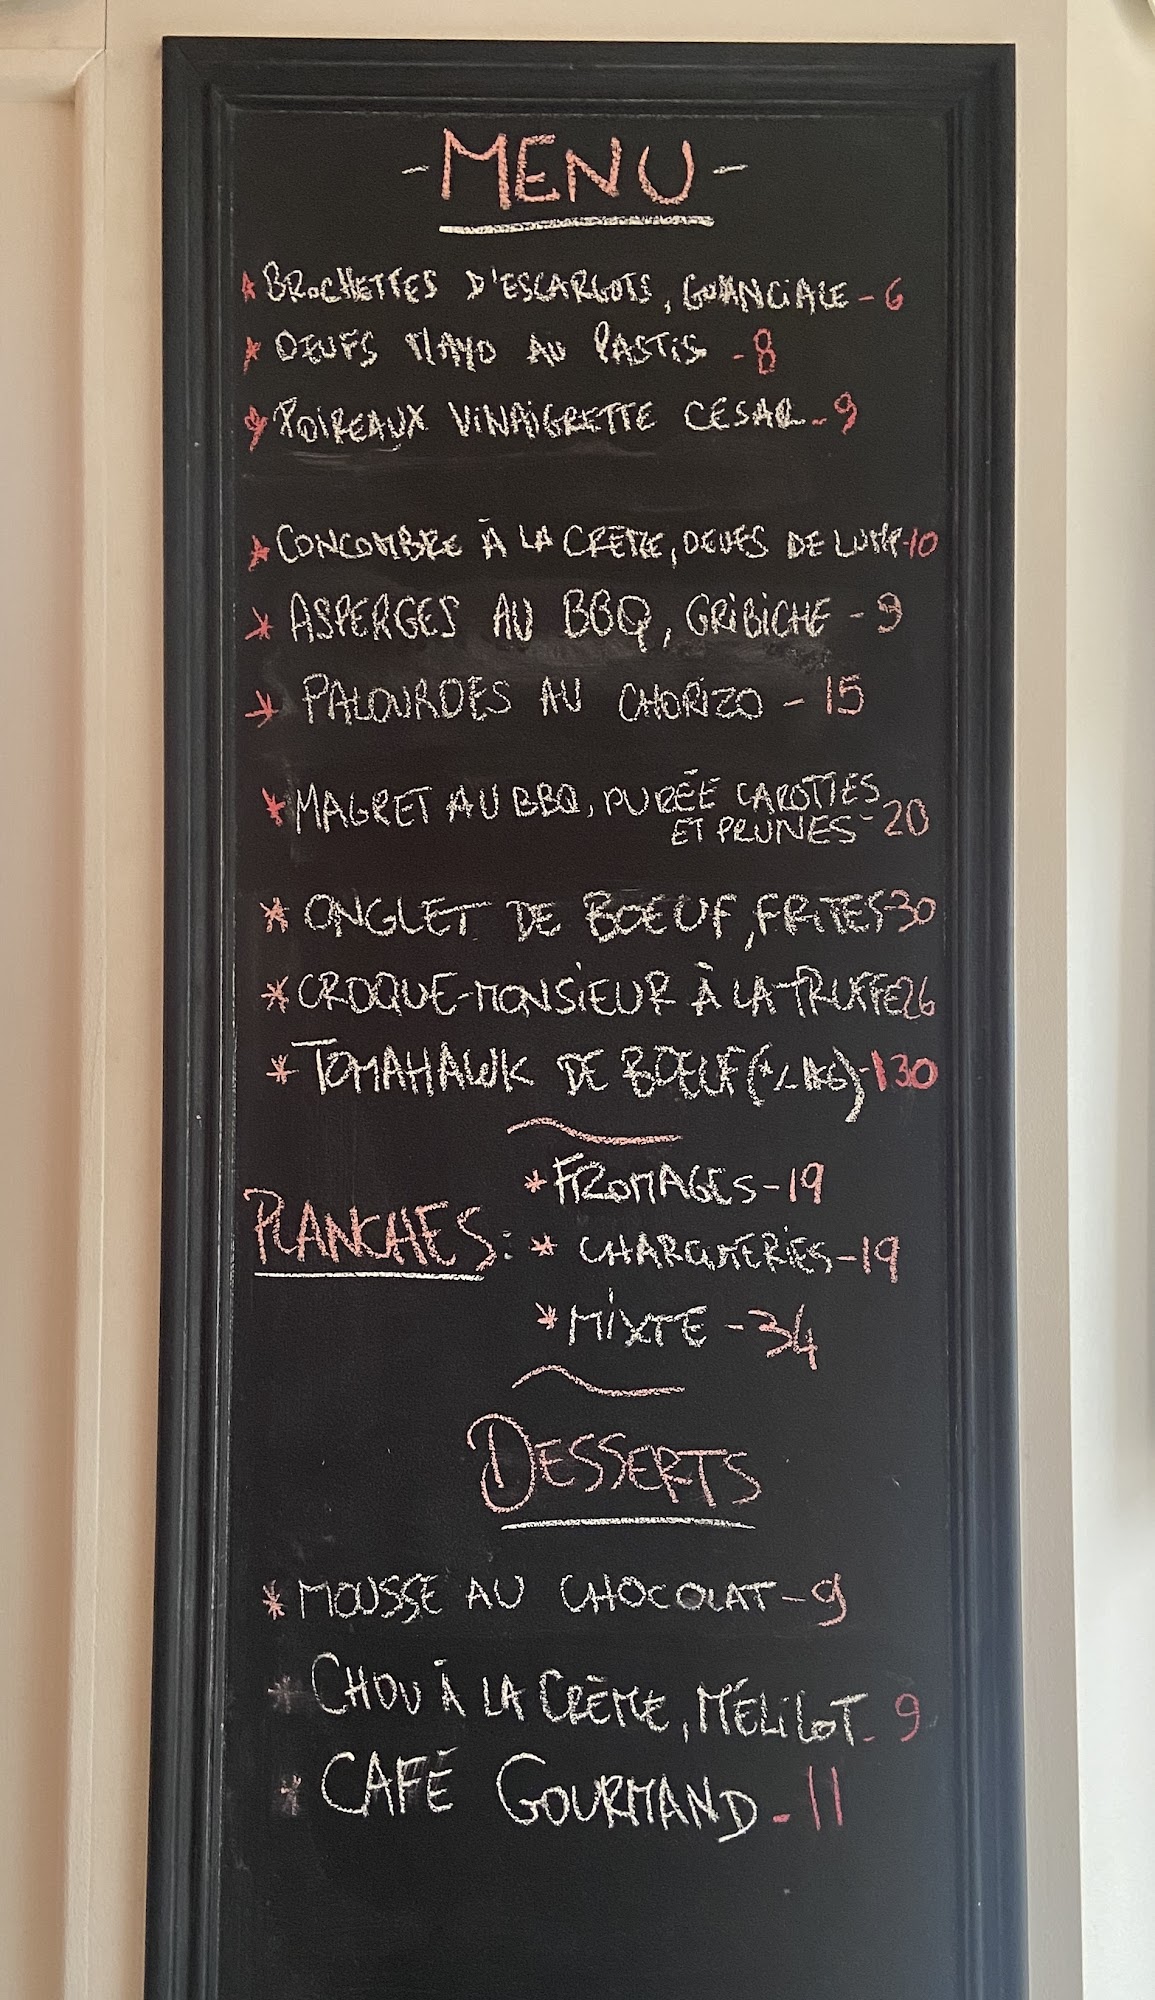 - MENU -
* BROCHETTES D'ESCARGOTS, GUANCIALE - 6
* OEUFS MAYO AU PASTIS - 8
* POIREAUX VINAIGRETTE CÉSAR - 9
* CONCOMBRE À LA CRÈME, OEUFS DE LUMP - 10
* ASPERGES AU BBQ, GRIBICHE - 9
* PALOURDES AU CHORIZO - 15
* MAGRET AU BBQ, PURÉE CAROTTES
ET PRUNES - 20
* ONGLET DE BOEUF, FRITES - 30
* CROQUE-MONSIEUR À LA TRUFFE 26
* TOMAHAWK DE BOEUF ( KG) - 130
* FROMAGES - 19
PLANCHES : * CHARCUTERIES - 19
* MIXTE - 34
DESSERTS
* MOUSSE AU CHOCOLAT - 9
* CHOU À LA CRÈME, MÉLILOT - 9
* CAFÉ GOURMAND - 11